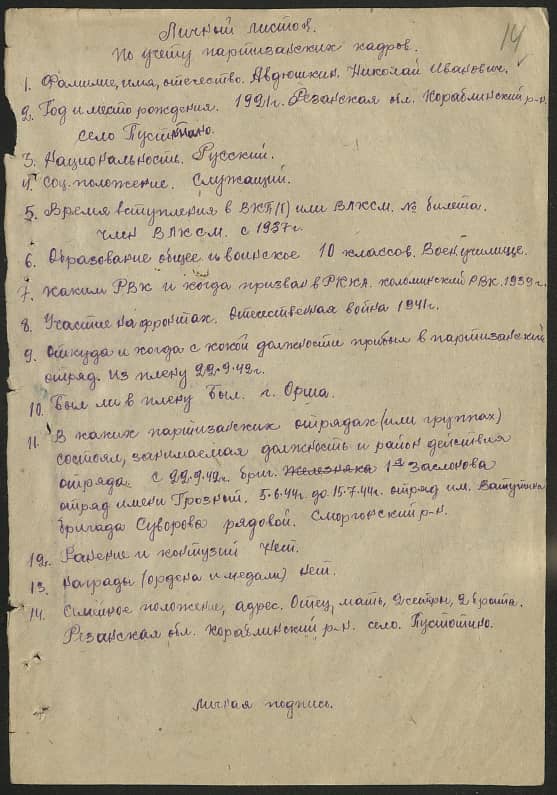 Личный листов.
14
По учету партизанских кадров.
1. Фамилие, имя, отечество. Авдюшкин Николай Иванович.
2. Год и место рождения. 1921г. Резанская обл. Кораблинский р-н.
село Пустотино.
3. Национальность. Русский.
4. Соц. положение. Служащий.
5. Время вступления в ВКП(б) или ВЛКСМ. № билета.
член ВЛКСМ. с 1937г.
6. Образование общее и воинское 10 классов. Воен. училище.
7. Каким РВК и когда призван в РККА. Коломинский РВК. 1939г.
8. Участие на фронтах. Отечественная война 1941г.
9. Откуда и когда с какой должности прибыл в партизанский
отряд. Из плену 22.9.42г.
10. Был ли в плену Был. г. Орша.
11. В каких партизанских отрядах (или группах)
состоял, занимаемая должность и район действия
отряда. с 22.9.42г. бриг. Железняка 1ая Заслонова
отряд имени Грозный. 5.6.44г. до 15.7.44г. отряд им. Ватутина
бригада Суворова рядовой. Сморгонский р-н.
12. Ранение и контузий Нет.
13. Награды (ордена и медали) нет.
14. Семейное положение, адрес. Отец, мать, 2 сестры, 2 брата.
Резанская обл. Кораблинский р-н. село. Пустотино.
личная подпись.